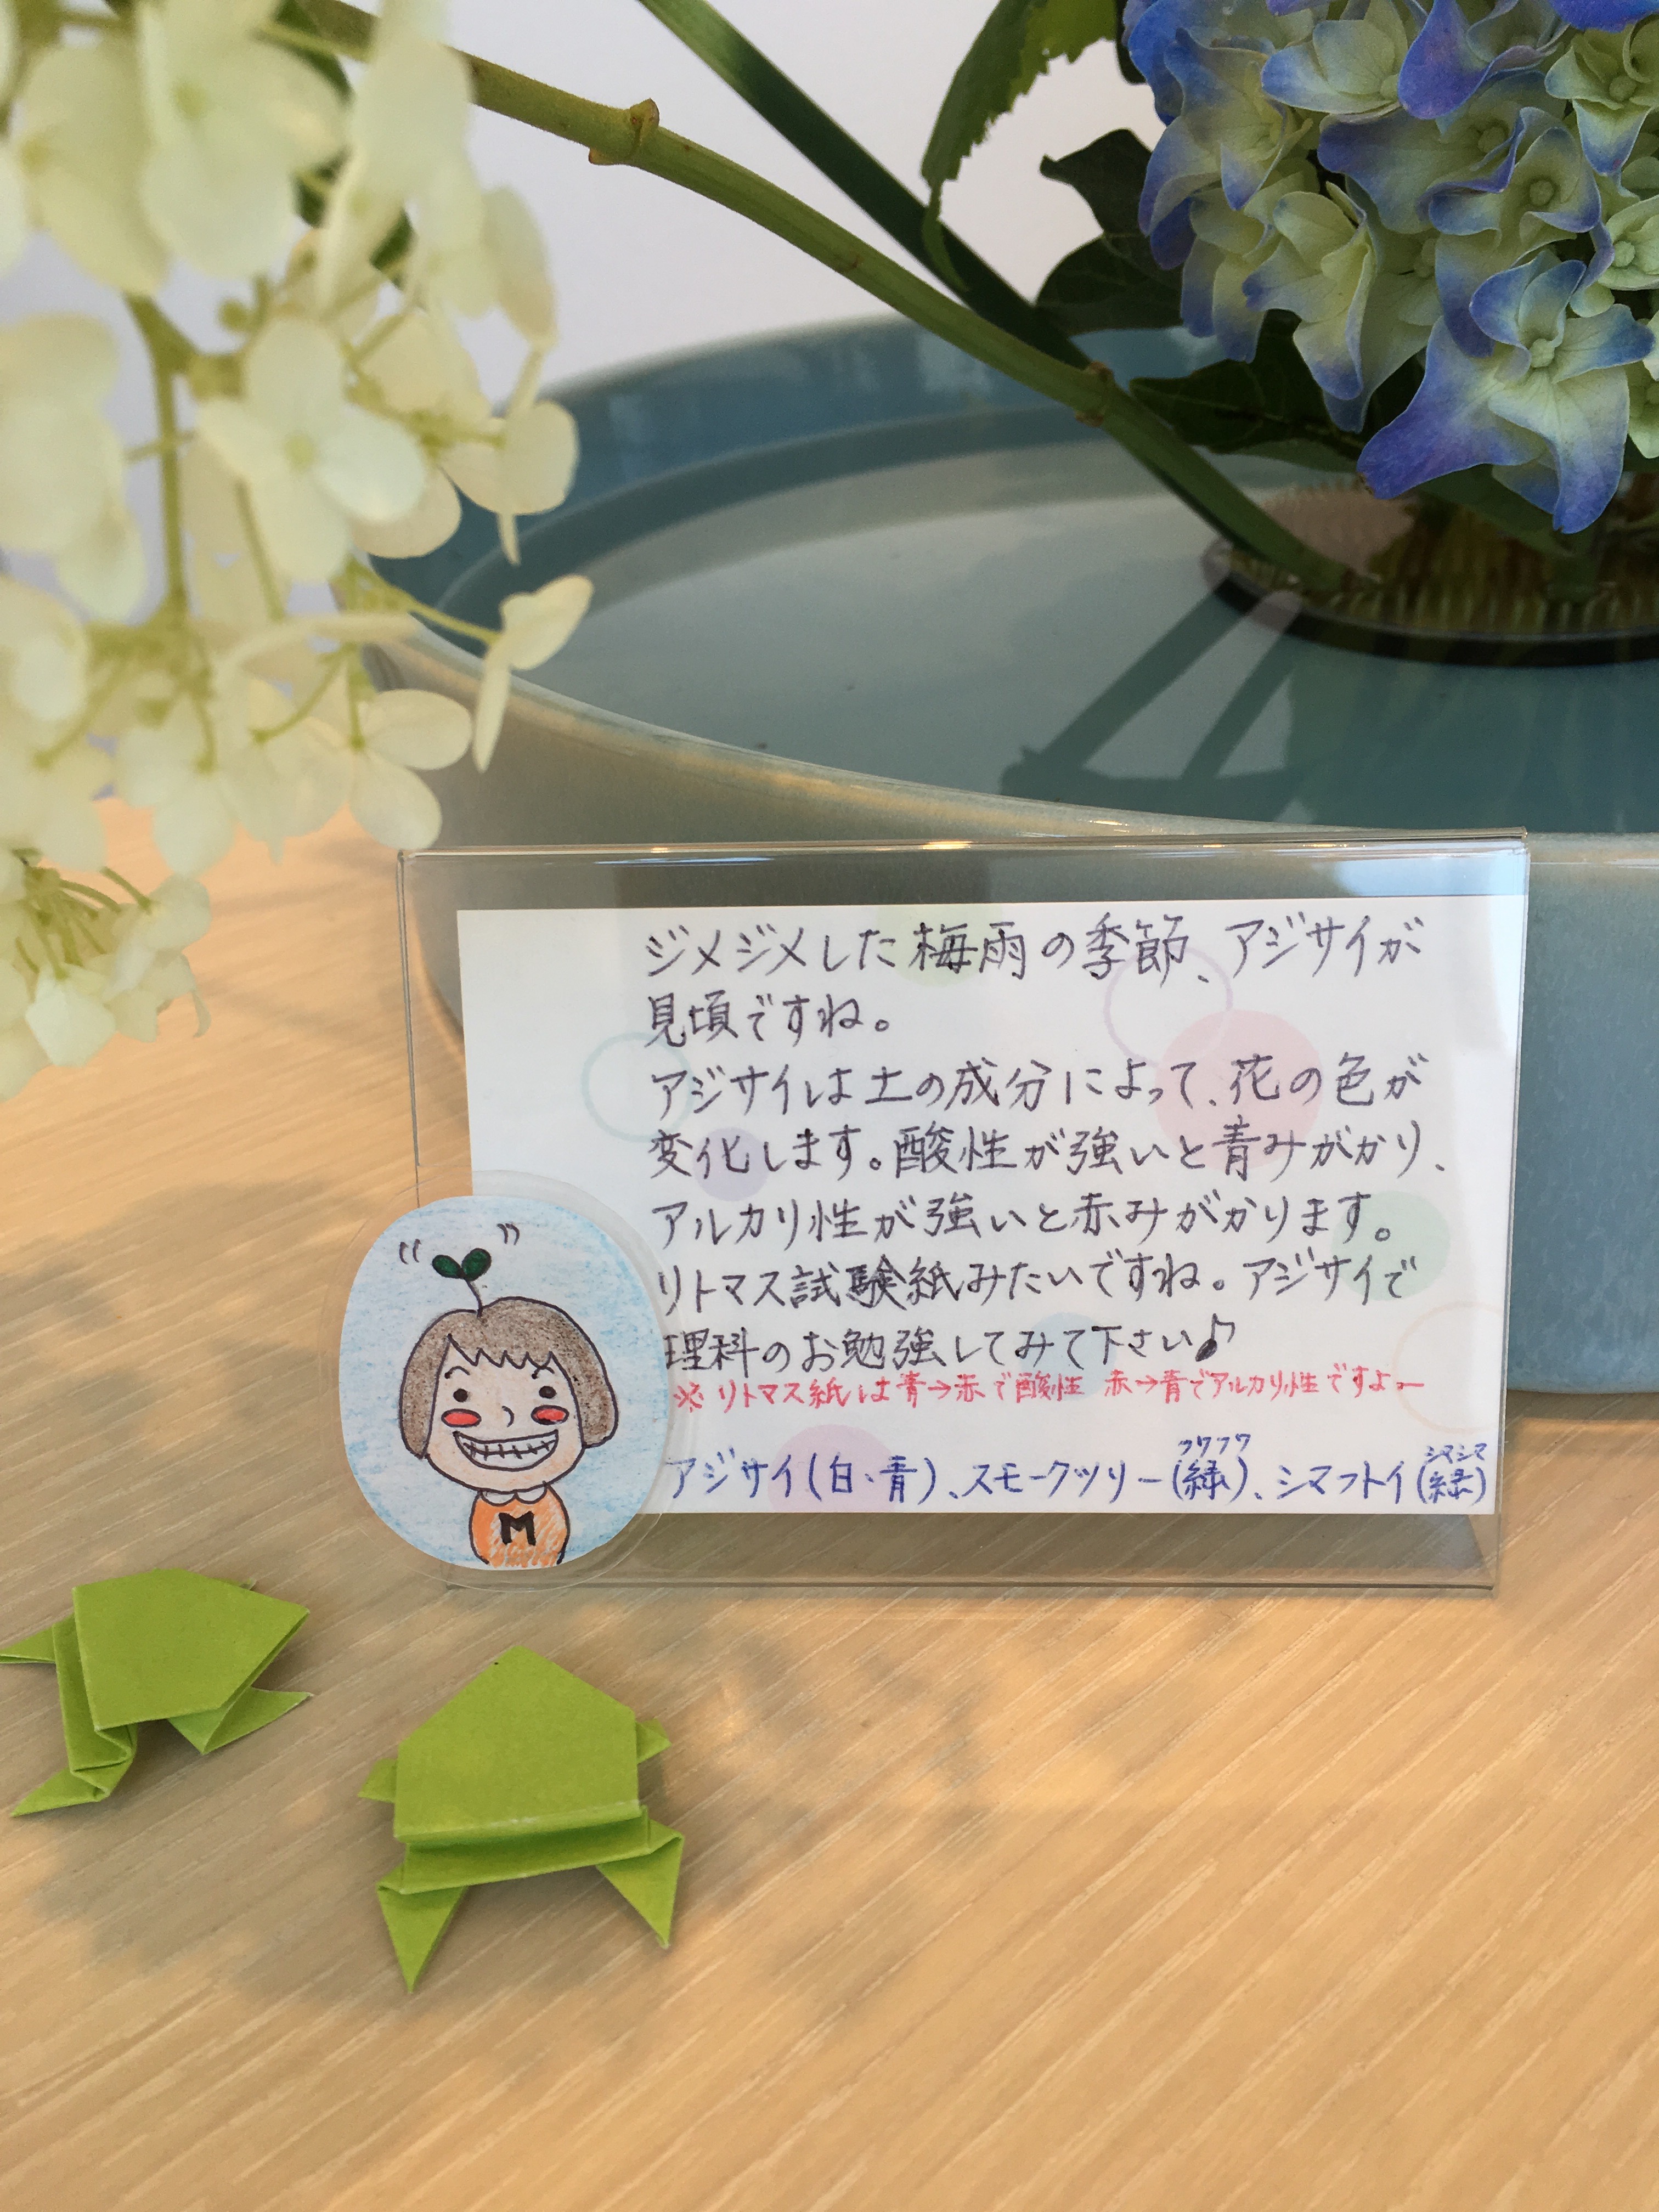 ジメジメした梅雨の季節、アジサイが
見頃ですね。
アジサイは土の成分によって、花の色が
変化します。酸性が強いと青みがかり、
アルカリ性が強いと赤みがかります。
リトマス試験紙みたいですね。アジサイで
理科のお勉強してみて下さい♪
※リトマス紙は青→赤で酸性 赤→青でアルカリ性ですよー
フワフワ シマシマ
アジサイ(白・青)、スモークツリー(緑)、シマフトイ(緑)
M